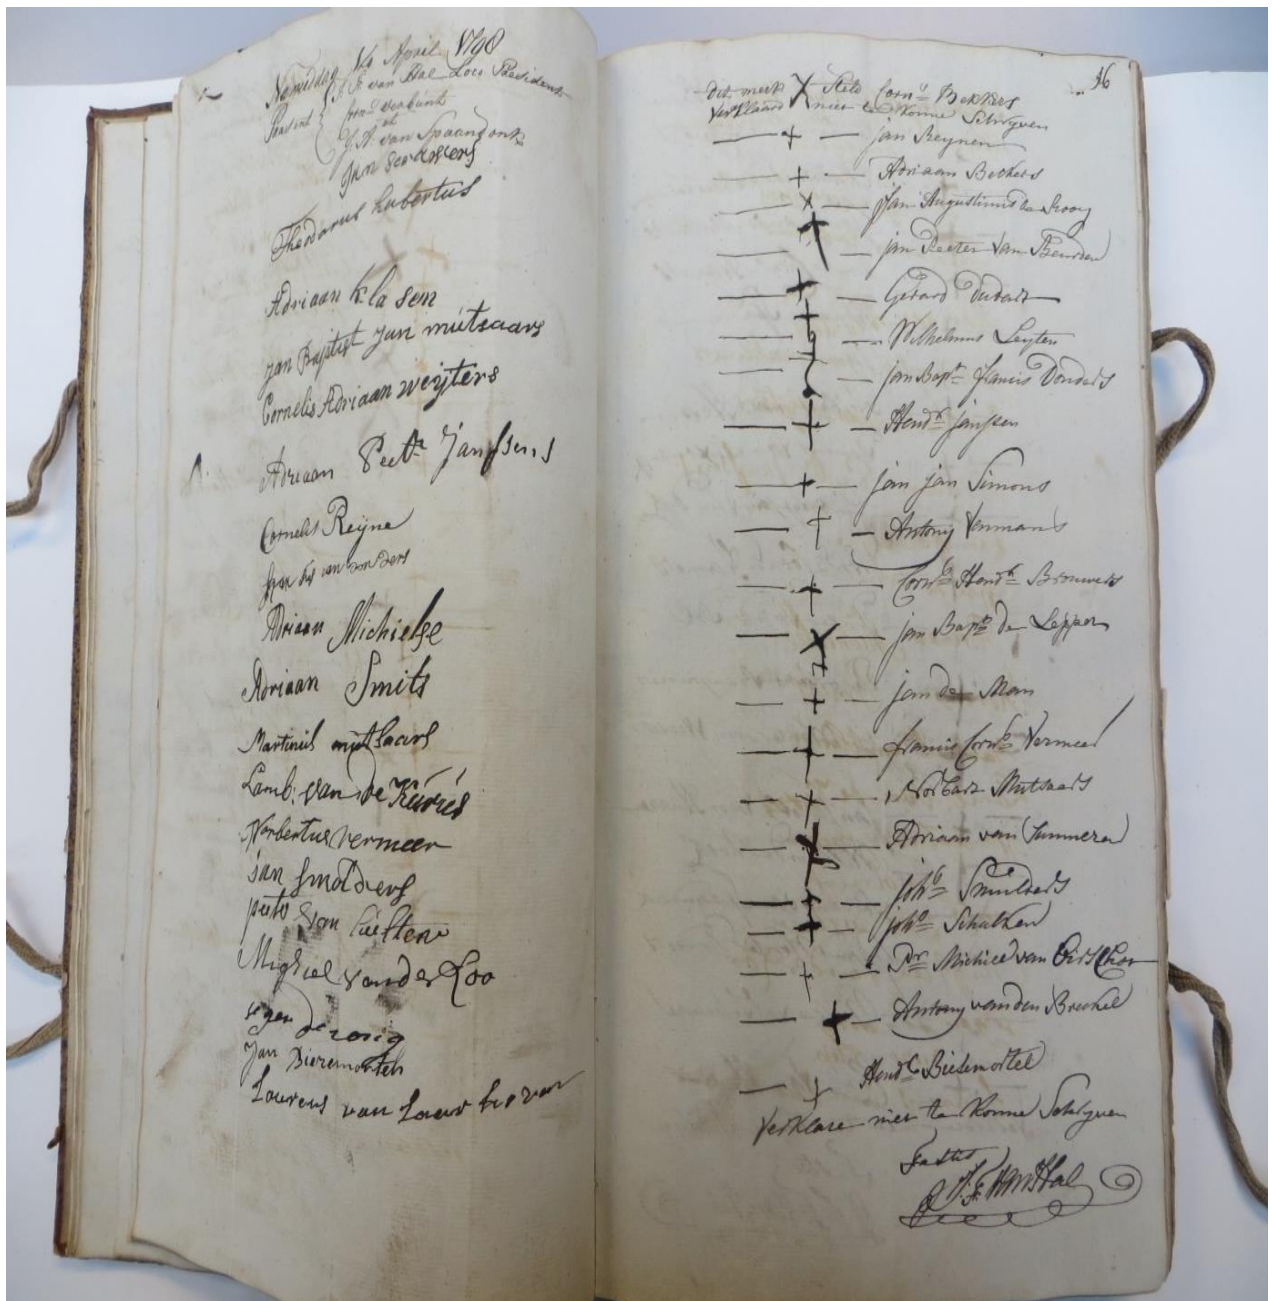 Namiddag 14 April 1798
Present J. F. van Hal Loco President
J. A. van Spaandonk
Jan
Theodorus hubertus
Adriaan kla sen
jan Baptist Jan mutsaars
Cornelis Adriaan weijters
Adriaan Peetr Janssens
Cornelis Reijne
van donders
Adriaan Michielse
Adriaan Smits
Martinus mutsaars
Lamb: van de
Norbertus vermeer
Jan Smolders
peeter van
Mighiel van der Loo
de
Jan Biezemortel
Lourens van
46
dit merk X Steld Corns Bekkers
Verklaard niet te konne Schryven
— + — jan Reynen
— + — Adriaan Beckers
— x — Jan Augustinus de Rooy
— + — jan Peeter Van Beurden
— + — Gerard
— + — Wilhelmus Leyten
— jan Bapt francis Donders
— + — Hendk janssen
— + — jan jan Simons
— + — Antony Venmans
— + — Corns Hendk Brouwers
— X — jan Bapt de Lepper
— + — jan de Man
— + — francis Corns Vermeer
— + — Norbart Mutsaars
— X — Adriaan van
— + — johs Smulders
— + — johs Schalken
— + — Pr Michiel van Oirschot
— + — Antony van den Breekel
— + — Hendk Biesemortel
Verklare niet te konne Schryven
J. F. van Hal